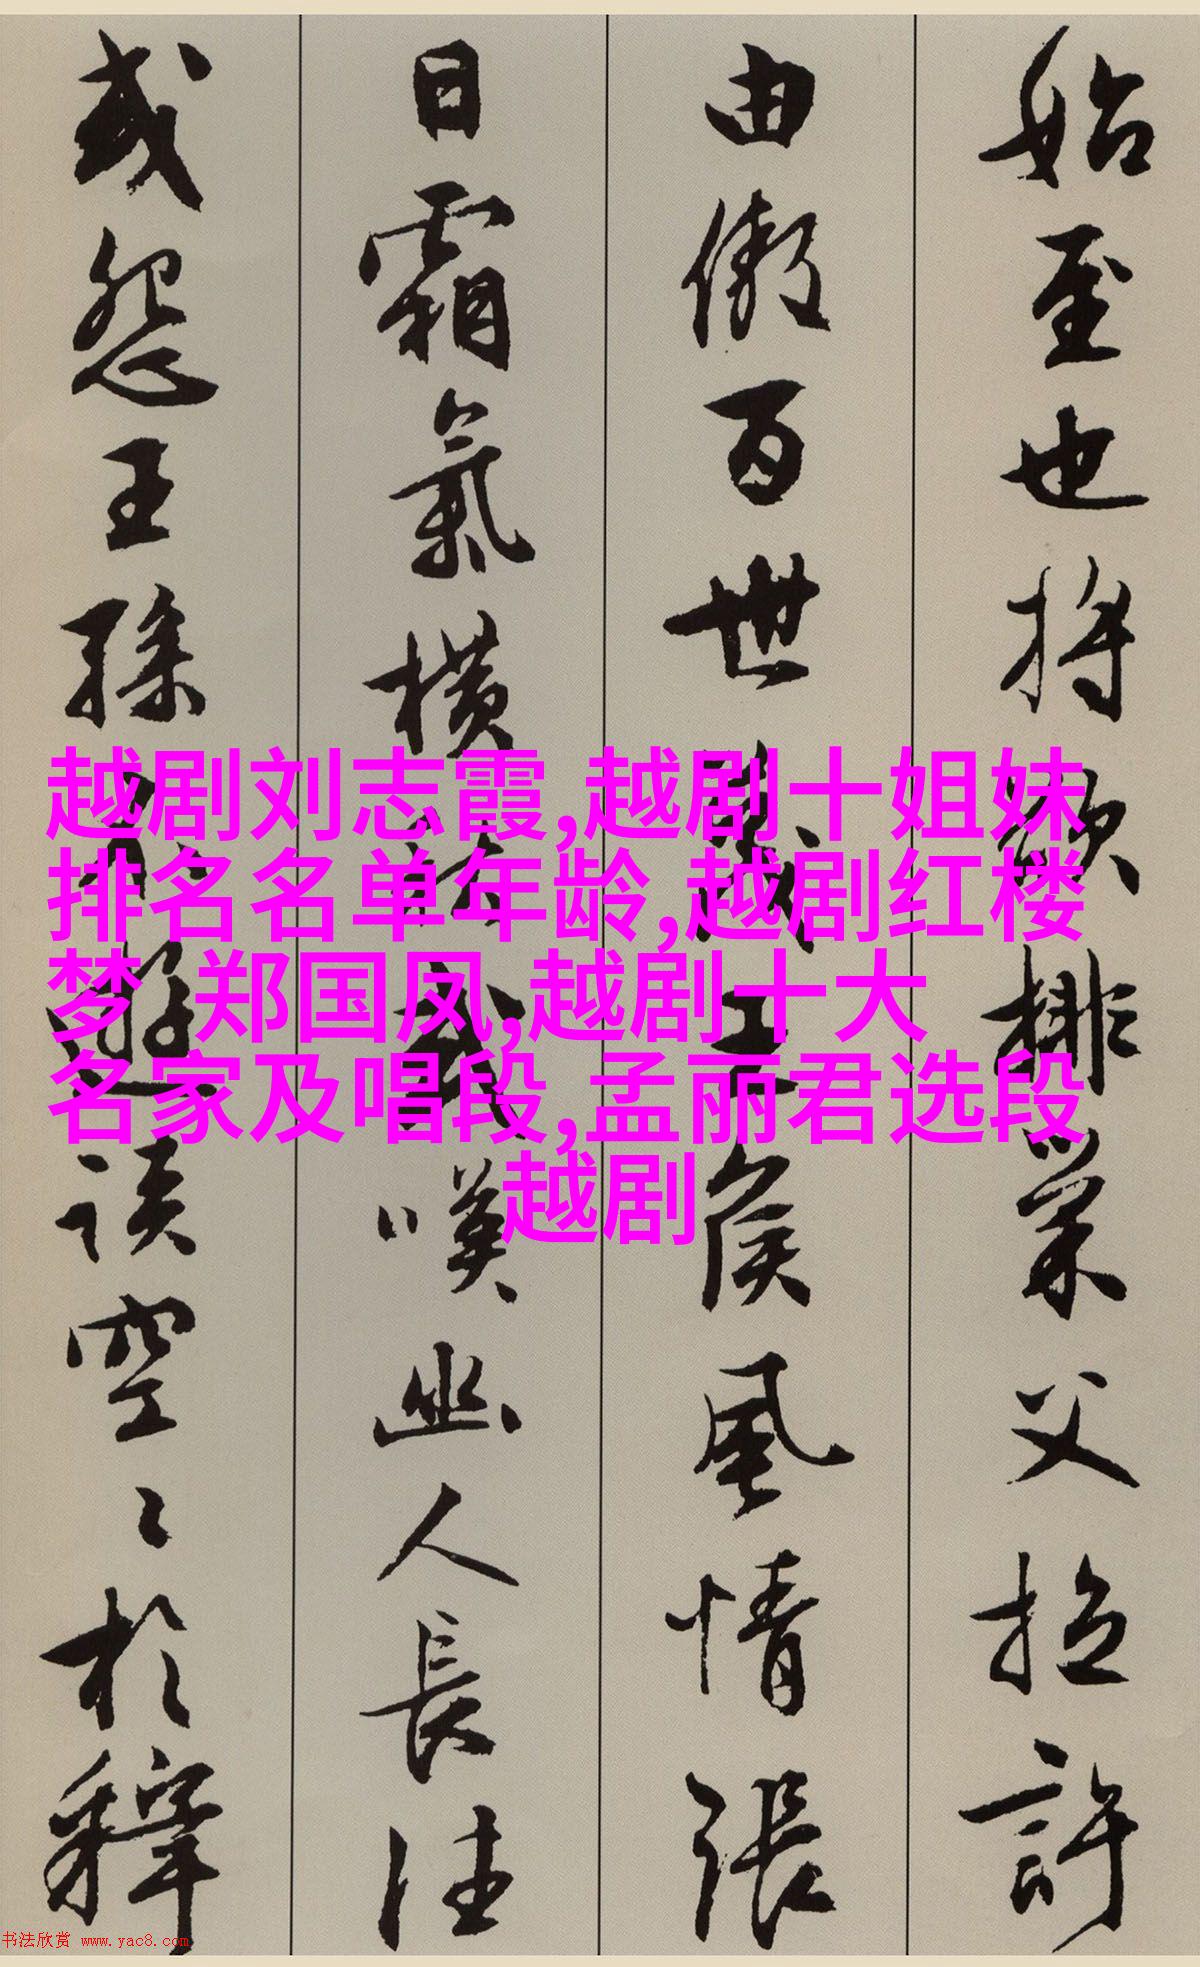 始至也將欲排巢父拉許
由傲百世蔑王侯風情張
日霜氣橫秋或嘆幽人長往
或怨王孫不遊談空々於釋
越剧刘志霞,越剧十姐妹
排名名单年龄,越剧红楼
梦 郑国凤,越剧十大
名家及唱段,孟丽君选段
越剧
书法欣赏 www.yac8.com